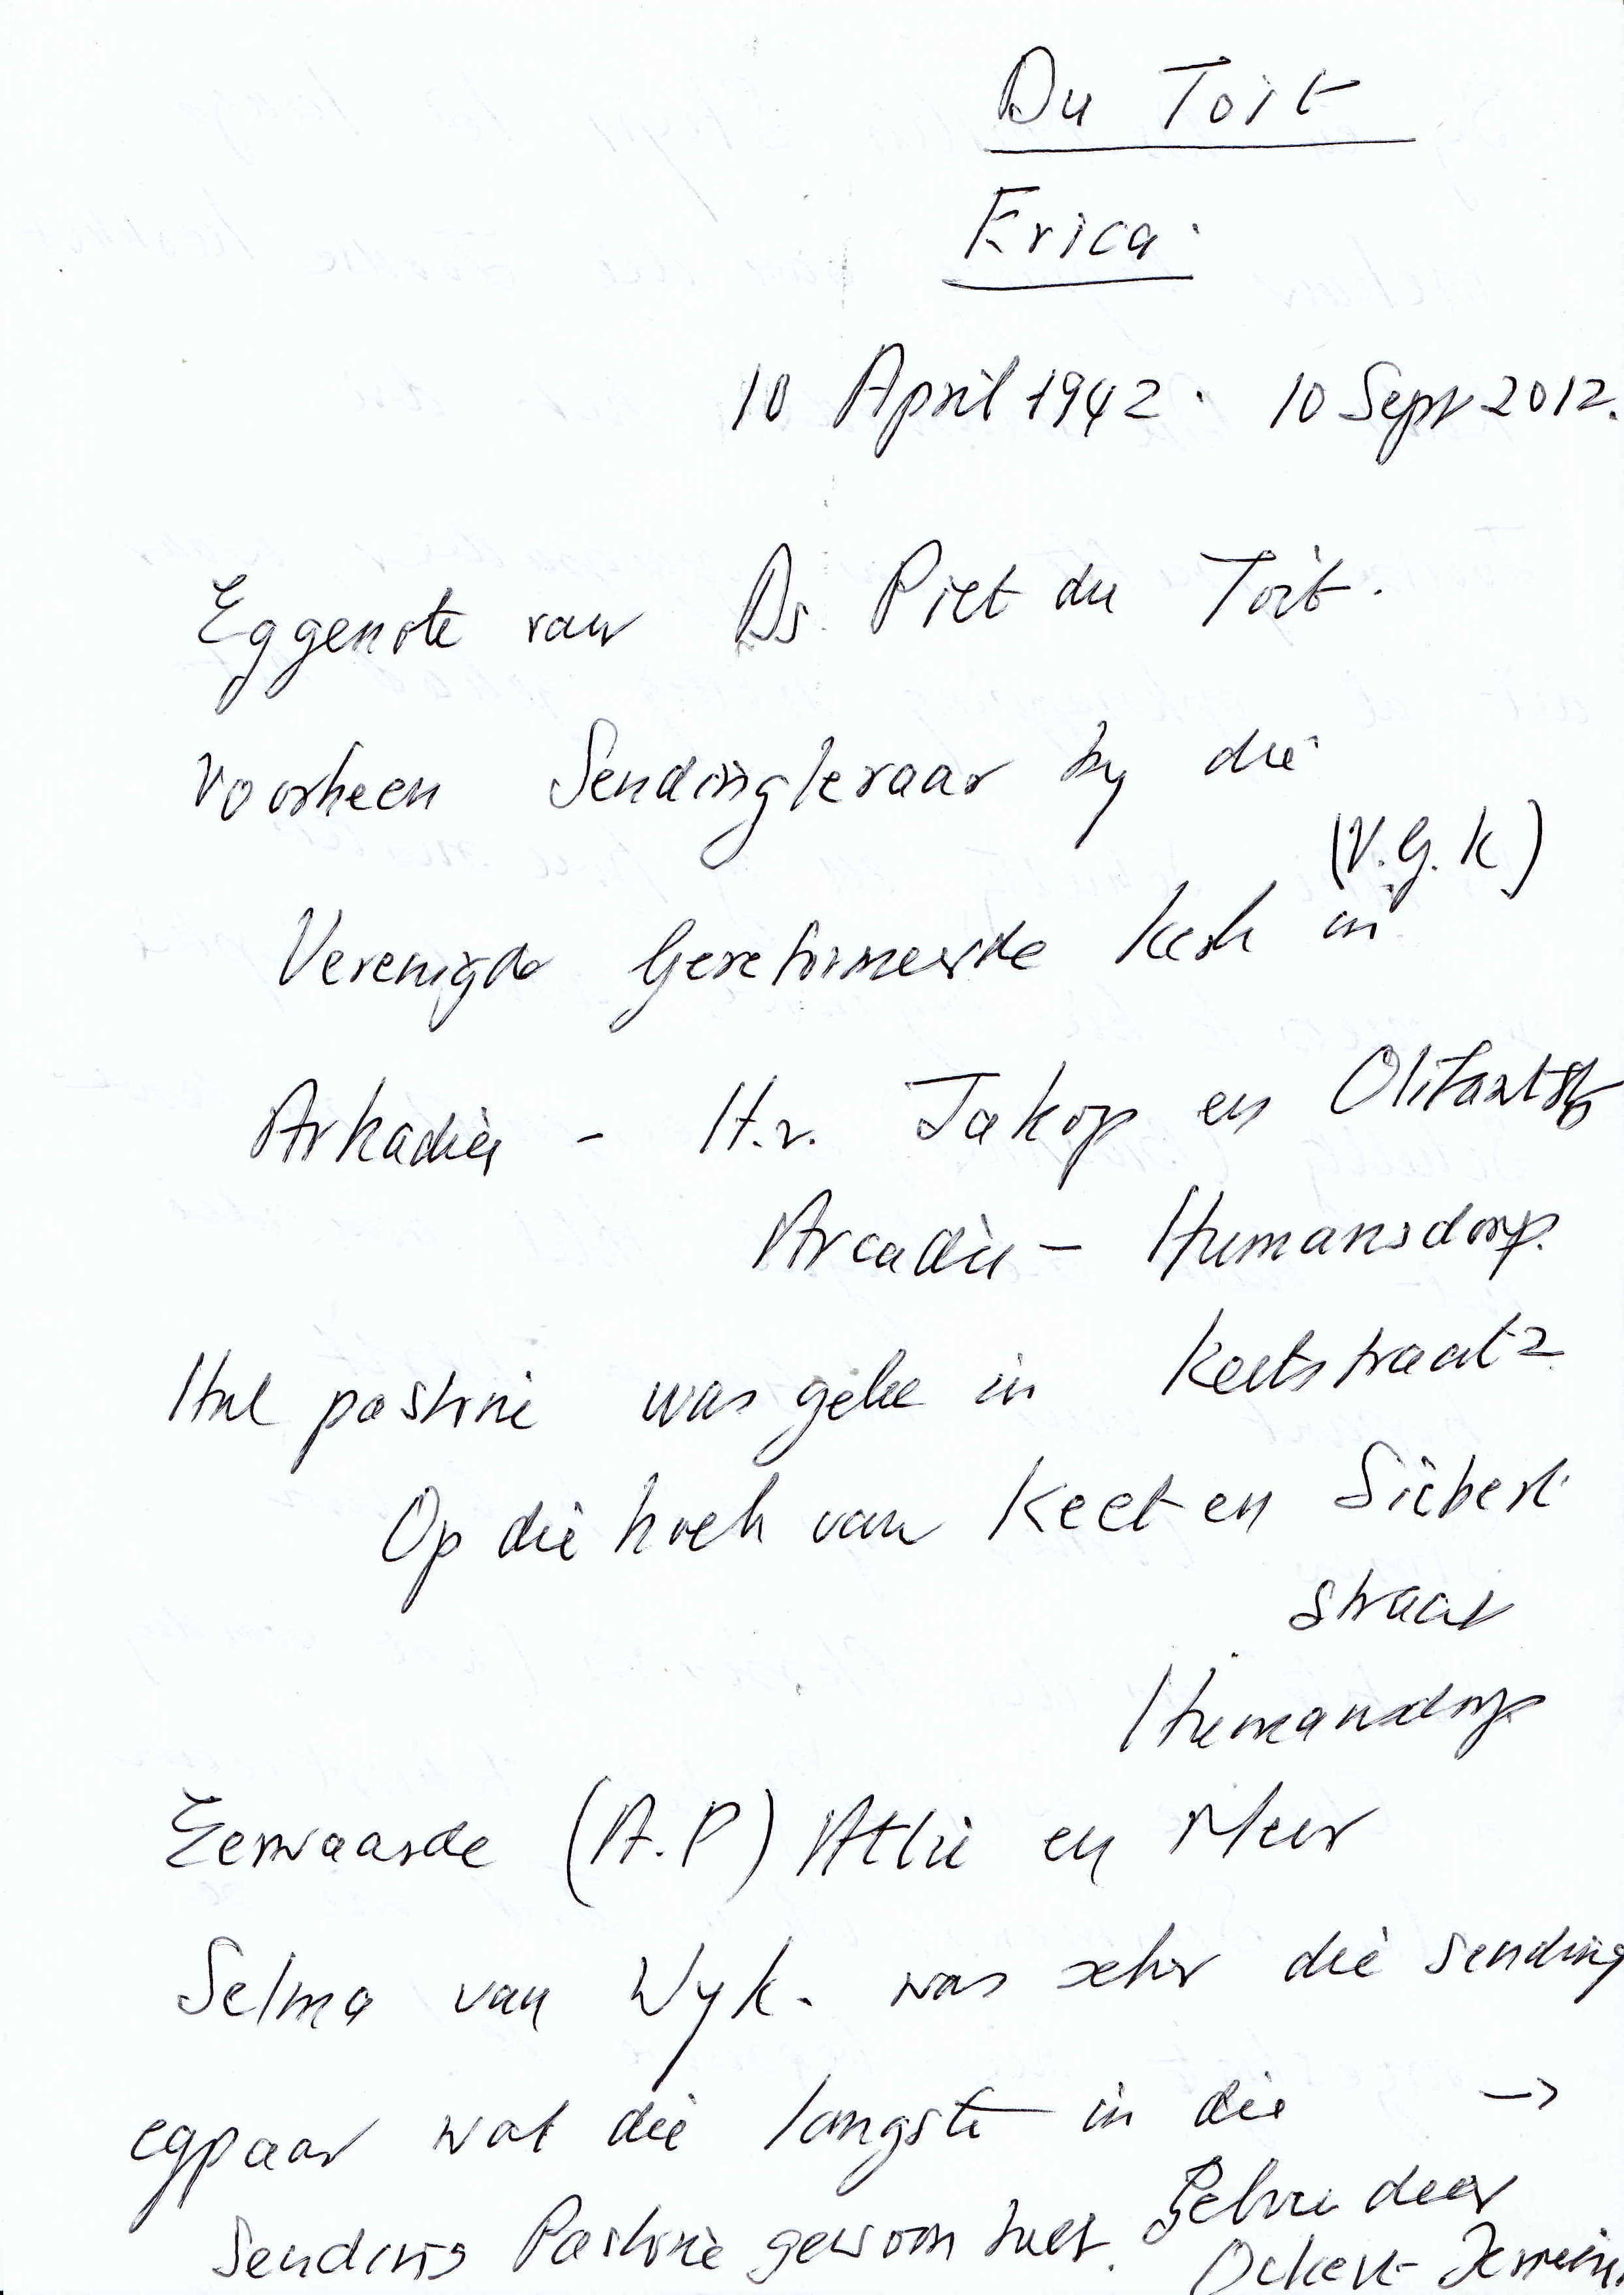 Du Toit
Erica.
10 April 1942. 10 Sept 2012.
Eggenote van Ds. Piet du Toit.
Voorheen Sendingleraar by die
(V.G.K)
Verenigde Gereformeerde Kerk in
Arkadia - H.v. Jakop en Olifantstr
Arcadia - Humansdorp.
Hul pastorie was geleë in Keetstraat 2
Op die hoek van Keet en Siebert
straat
Humansdorp
Eerwaarde (A.P) Attie en Mevr
Selma van Wyk. was seker die sending
egpaar wat die langste in die →
Sending Pastorie gewoon het. Gebou deur
Ockert